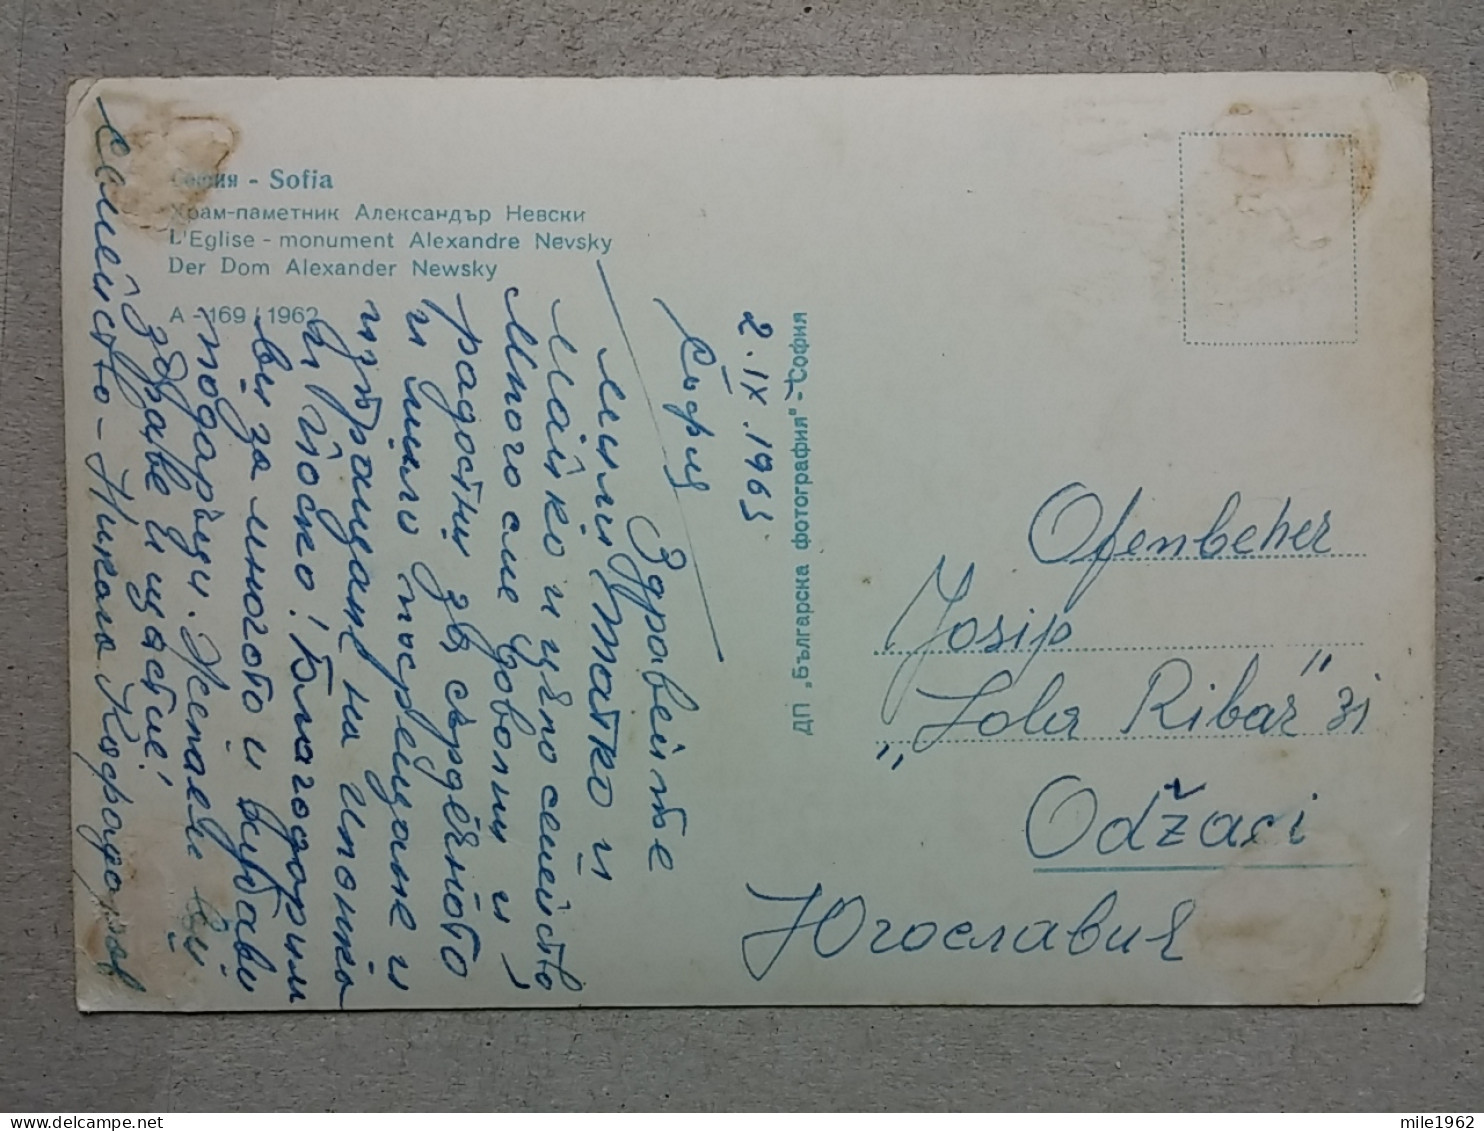 София - Sofia
Храм-паметник Александър Невски
L'Eglise - monument Alexandre Nevsky
Der Dom Alexander Newsky
A - 169 / 1962
ДП „Българска фотография" - София
2.IX.1965
София
Здравейте
мили татко и
майко и цяло семейство
Много сме доволни и
радостни за сърдечното
и мило посрещане и
изпращане на
и Йоско! Благодорим
Ви за многото и хубави
подаръци. Желаем Ви
здраве и щастие!
семейство - Никола
Ofenbeher
Josip
„Lola Ribar" 31
Odžaci
Югославия
mile1962